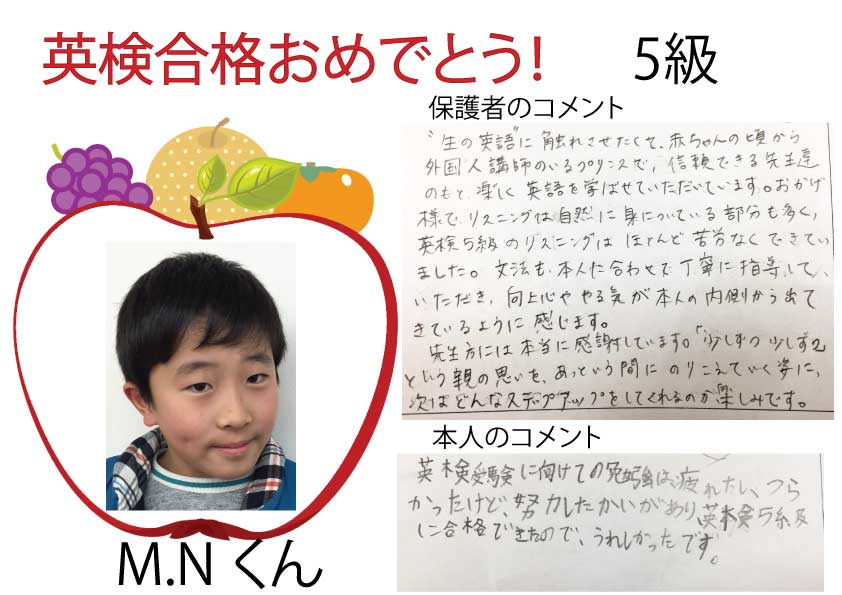 英検合格おめでとう! 5級
保護者のコメント
"生の英語"に触れさせたくて、赤ちゃんの頃から
外国人講師のいるプリンスで、信頼できる先生達
のもと、楽しく英語を学ばせていただいています。おかげ
様で、リスニングは自然に身についている部分も多く、
英検5級のリスニングはほとんど苦労なくできてい
ました。文法も本人に合わせて丁寧に指導して
いただき、向上心ややる気が本人の内側から出て
きているように感じます。
先生方には本当に感謝しています。「少しずつ少しずつ」
という親の思いを、あっという間にのりこえていく姿に、
次はどんなステップアップをしてくれるのか楽しみです。
本人のコメント
英検受験に向けての勉強は、疲れたし、つら
かったけど、努力したかいがあり、英検5級
に合格できたので、うれしかったです。
M.N くん